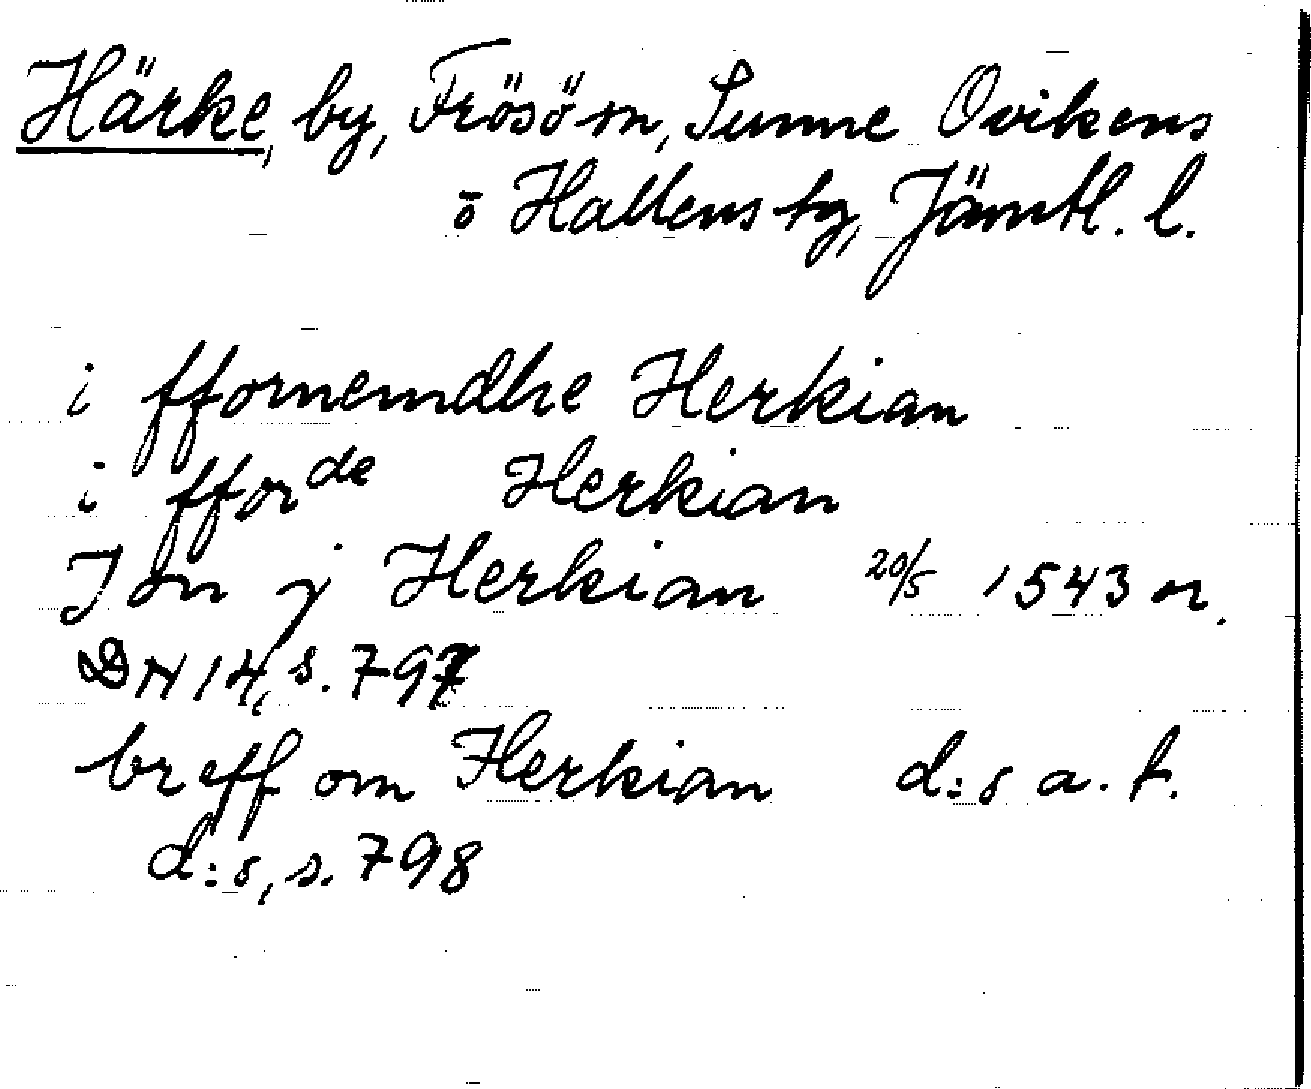 Härke, by, Frösö sn, Sunne Ovikens
o Hallens tg, Jämtl. l.
i ffornemdhe Herkian
i fforde Herkian
Ion j Herkian 20/5 1543 or.
DN 14, s. 797
breff om Herkian d:s a. t.
d:s, s. 798